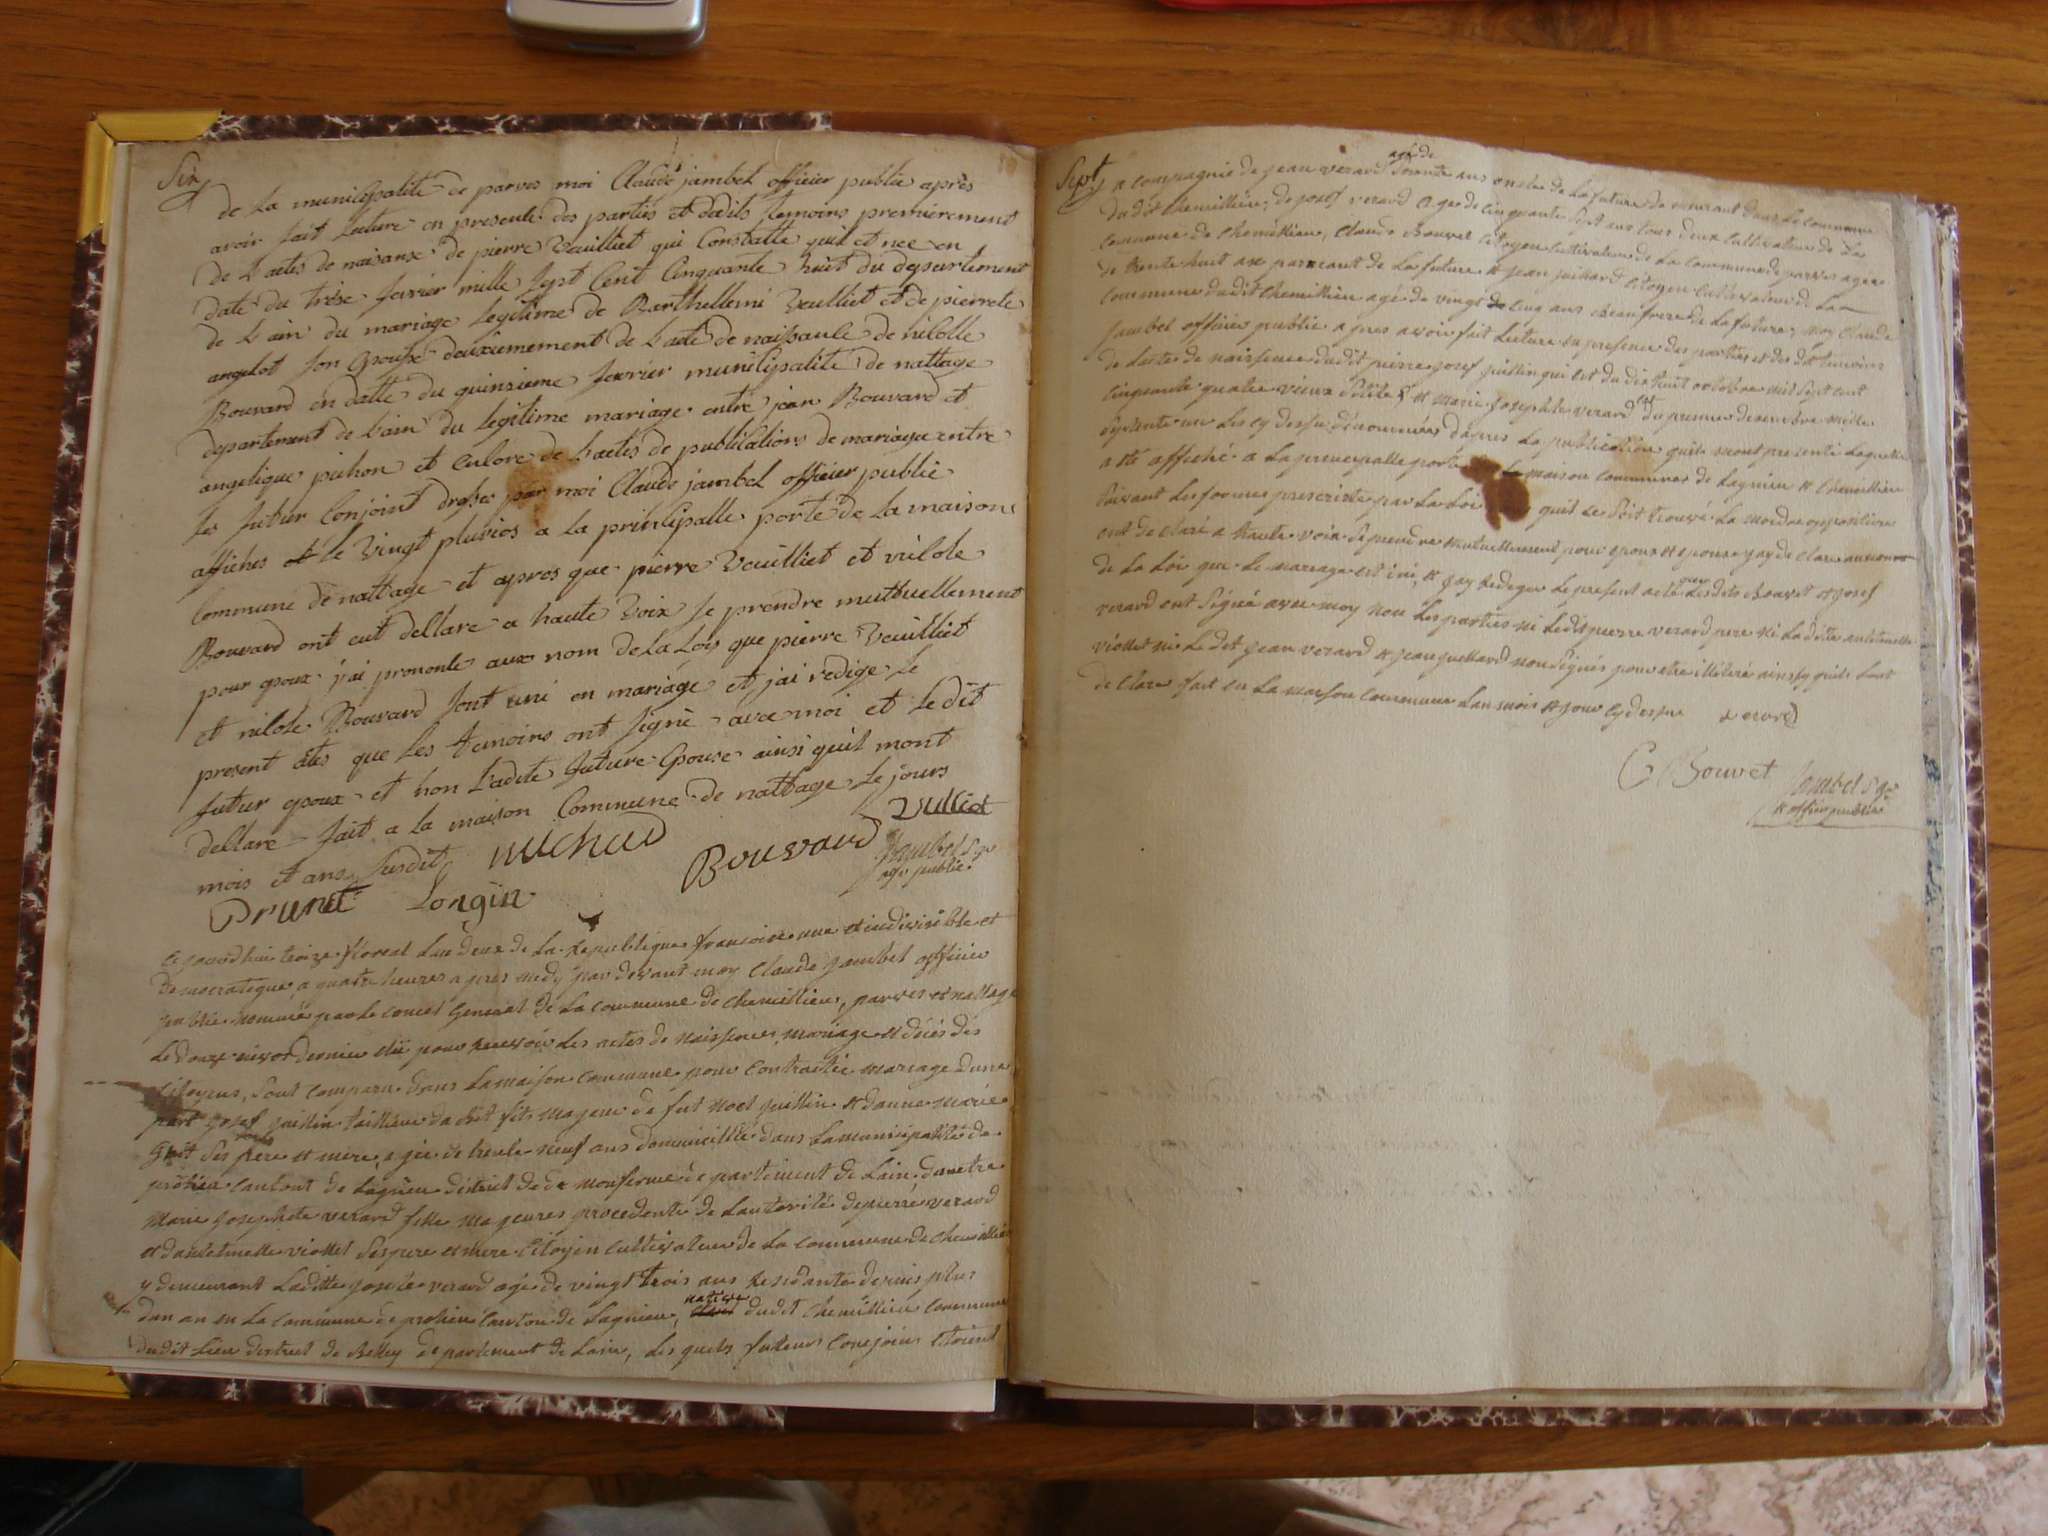 Six
de la municipalité de parves moi Claude jambel officier public après
avoir fait lecture en presence des parties et dedits temoins premierement
de lactes de naisanse de pierre Vuilliet qui Constatte quil et nee en
date du trése fevrier mille sept Cent Cinquante huit du departement
de l'ain du mariage legitime de Barthellemi Vuilliet et de pierrete
angelot son epouse deuxiemement de l'acte de naissance de nicolle
Bouvard en datte du quinsieme fevrier municipalité de nattage
departement de l'ain du legitime mariage entre jean Bouvard et
angelique pichon et enlore de lactes de publications de mariage entre
les futur Conjoint dressé par moi Claude jambel officier public
affiches le vingt pluvios a la principalle porte de la maison
Commune de nattage et apres que pierre Vuilliet et nicole
Bouvard ont eut declare a haute voix se prendre mutuellement
pour epoux j'ai prononcé aux nom de la Lois que pierre Vuilliet
et nicole Bouvard sont uni en mariage et j'ai redigé le
present actes que les temoins ont signé avec moi et le dit
futur epoux et non ladite future epouse ainsi quil mont
declare fait a la maison Commune de nattage le jours
mois et ans susdit michud Bouvard Vulliet
Prunet Longin Jambel
public
cejourdhui treize floreal lan deux de la republique francoise une et indivisible et
Democratique a quatre heures apres midy par devant moy Claude Jambel officier
public nommé par le conseil General de la commune de chemillieu, parves et nattage
le douze nivos dernier élu pour recevoir les actes de naissences mariage et décés des
citoyens, sont comparu dans la maison commune pour contracter mariage dune
part josef juillin tailleur dabit fils majeur de fut noel juillin et danne marie
ses pere et mere, agée de trente neuf ans domicillié dans la municipalité de
canton de Lagnieu district de monferme departement de Lain, dautre
Marie Josephte verard fille majeures procedente de lautorité de pierre verard
et dantoinette viollet ses pere et mere Citoyen cultivateur de la commune de chemillieu
y demeurant laditte verard agée de vingt trois ans residante depuis plus
dun an en la commune de canton de Lagnieu, native dudit chemillieu commune
dudit lieu district de Belley departement de Lain, les quels futeurs conjoin étoient
Sept
agé de
a compagnié de jean verard soixante ans oncles de la future demeurant dans la commune
dudit chemillieu, de josef verard agée de cinquante sept ans tous deux cultivateur de la
commune de chemillieu, claude Bouvet citoyen cultivateur de la commune de parves agée
de trente huit ans parxant de la future et jean juilliard citoyen cultivateur de la
commune dudit chemillieu agé de vingt cinq ans beaufrere de la future, moy claude
jambel officier public apres avoir fait lecture en presence des parties et des dit temoins
de lactes de naissence dudit pierre josef juillin qui est du dixhuit octobre mil sept cent
cinquante quatre vieux stile et marie josephte verard du premier decembre mille
septante un les cy dessu denommées dapres la publication quils mont presenté laquelle
a été affiché a la principalle porte maison commune de Lagnieu et chemillieu
suivant les formes prescriste par la loi quil se soit trouvé la moindre opposition
ont declaré a haute voix se prendre mutuellement pour epoux et epouse jay declare au nom
de la Loi que le mariage est uni et jay redeger le present acte que lesdits Bouvet et josef
verard ont signé avec moy non les parties ni ledit pierre verard pere ni la dite antoinette
viollet ni le dit jean verard et jean juilliard non signés pour etre illiteré ainsy quils lont
declare fait en la maison commune lan mois et jour cy dessu verard
C Bouvet Jambel
et officier public